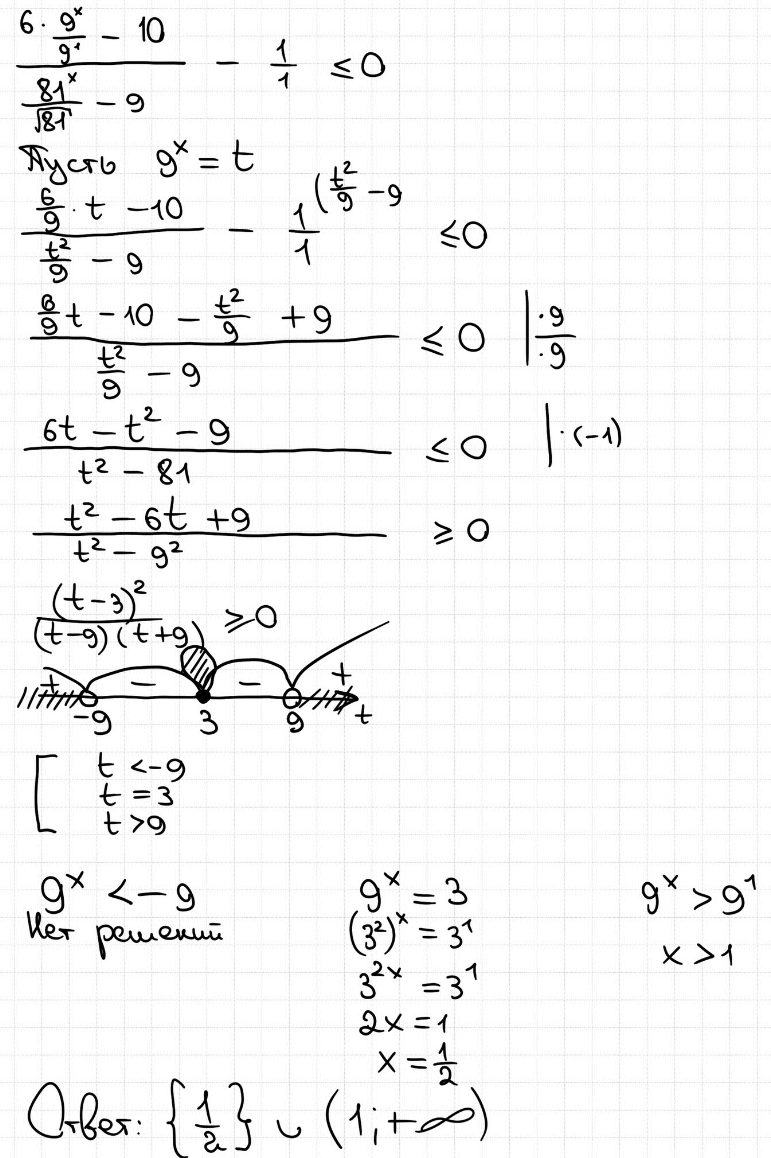 6 · 9^x/9^1 − 10
――――――――― − 1/1 ≤ 0
81^x/√81 − 9
Пусть 9^x = t
6/9 · t − 10
――――――――― − 1/1 ^(t²/9 − 9 ≤ 0
t²/9 − 9
6/9 t − 10 − t²/9 + 9
――――――――― ≤ 0 | ·9/·9
t²/9 − 9
6t − t² − 9
――――――――― ≤ 0 | · (−1)
t² − 81
t² − 6t + 9
――――――――― ≥ 0
t² − 9²
(t−3)²
――――――――― ≥ 0
(t−9)(t+9)
+ − − +
−9 3 9 t
[ t < −9
t = 3
t > 9
9^x < −9
Нет решений
9^x = 3
(3²)^x = 3^1
3^2x = 3^1
2x = 1
x = 1/2
9^x > 9^1
x > 1
Ответ: {1/2} ∪ (1; +∞)